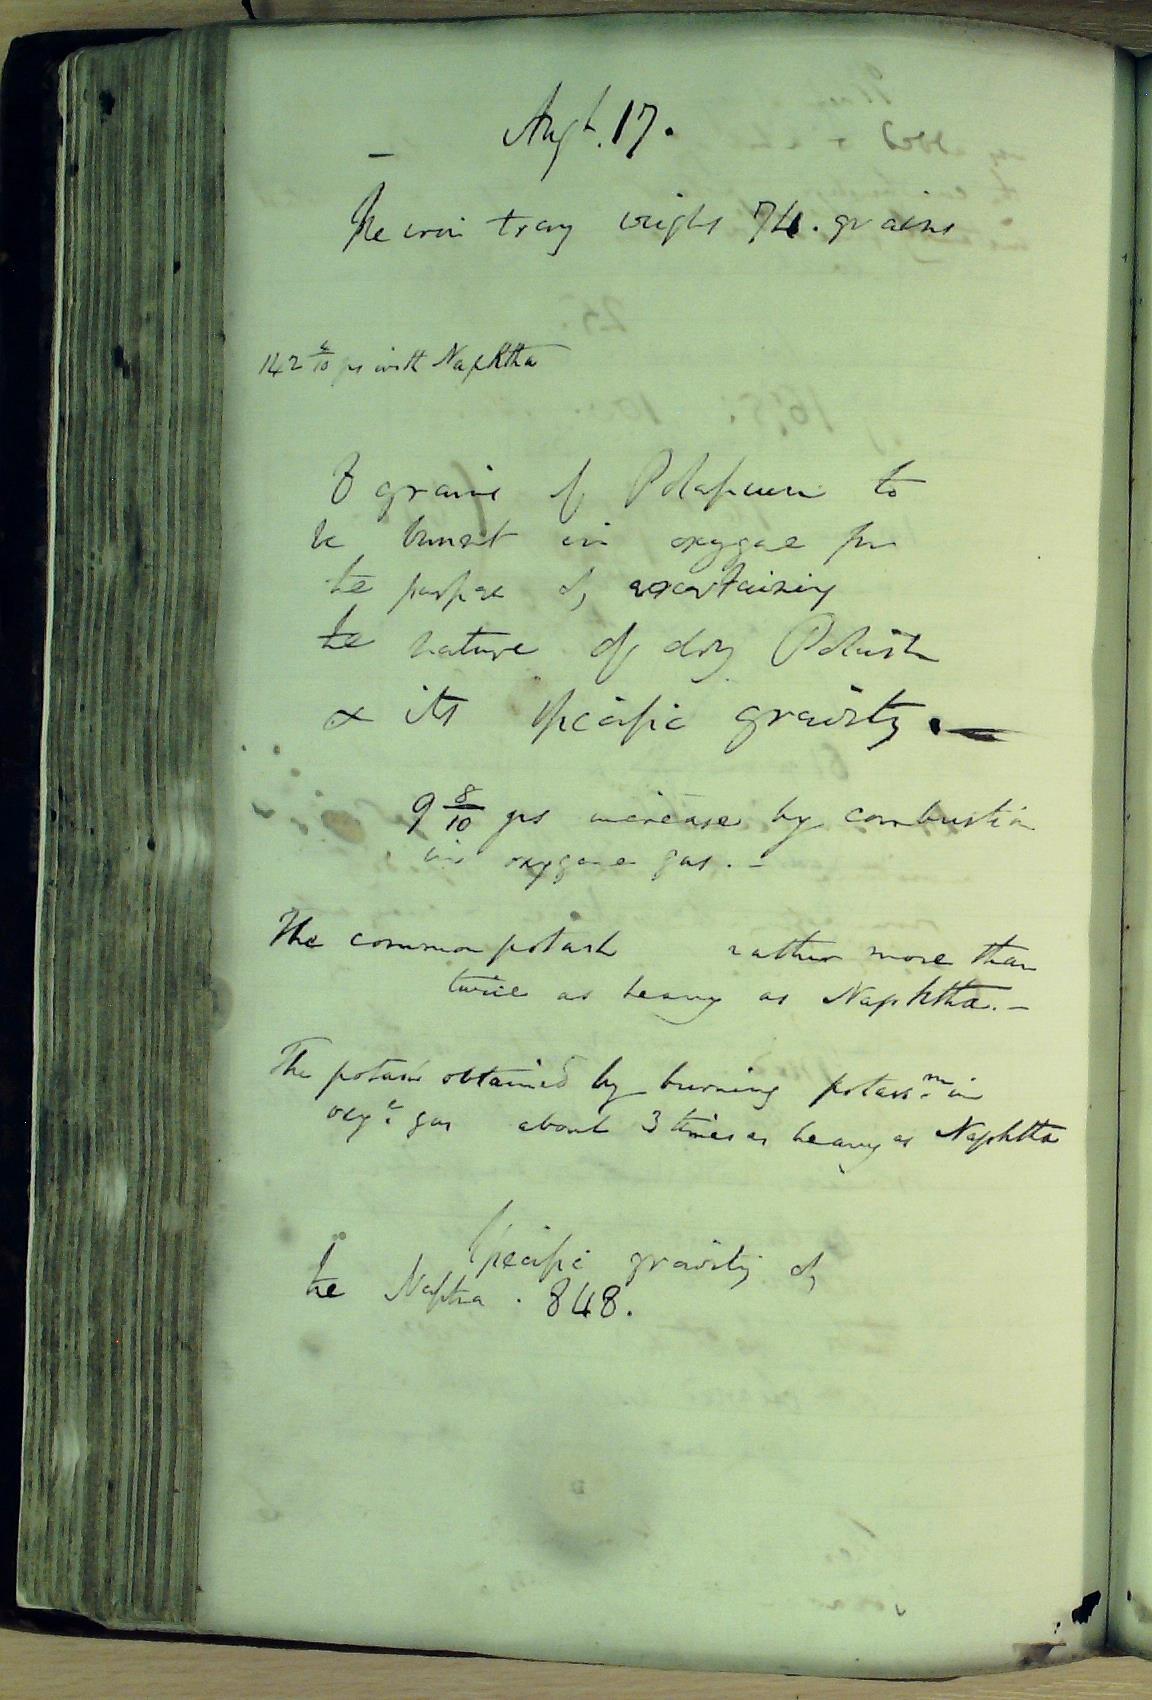 Augt. 17.
The iron tray weighs 74. grains
142 6/10 grs with Naphtha
8 grains of Potassium to
be burnt in oxygae for
the purpose of ascertaining
the nature of dry Potash
& its specific gravity. —
9 8/10 grs increase by combustion
in oxygene gas. —
The common potash rather more than
twice as heavy as Naphtha. —
The potash obtained by burning potass.m in
oxy.e gas about 3 times as heavy as Naphtha
Specific gravity of
the Naptha . 848.